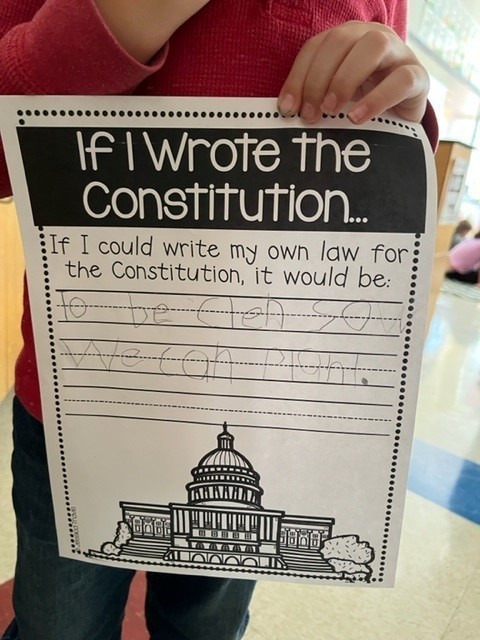 If I Wrote the
Constitution...
If I could write my own law for
the Constitution, it would be:
To be cleh sow
We can plant.